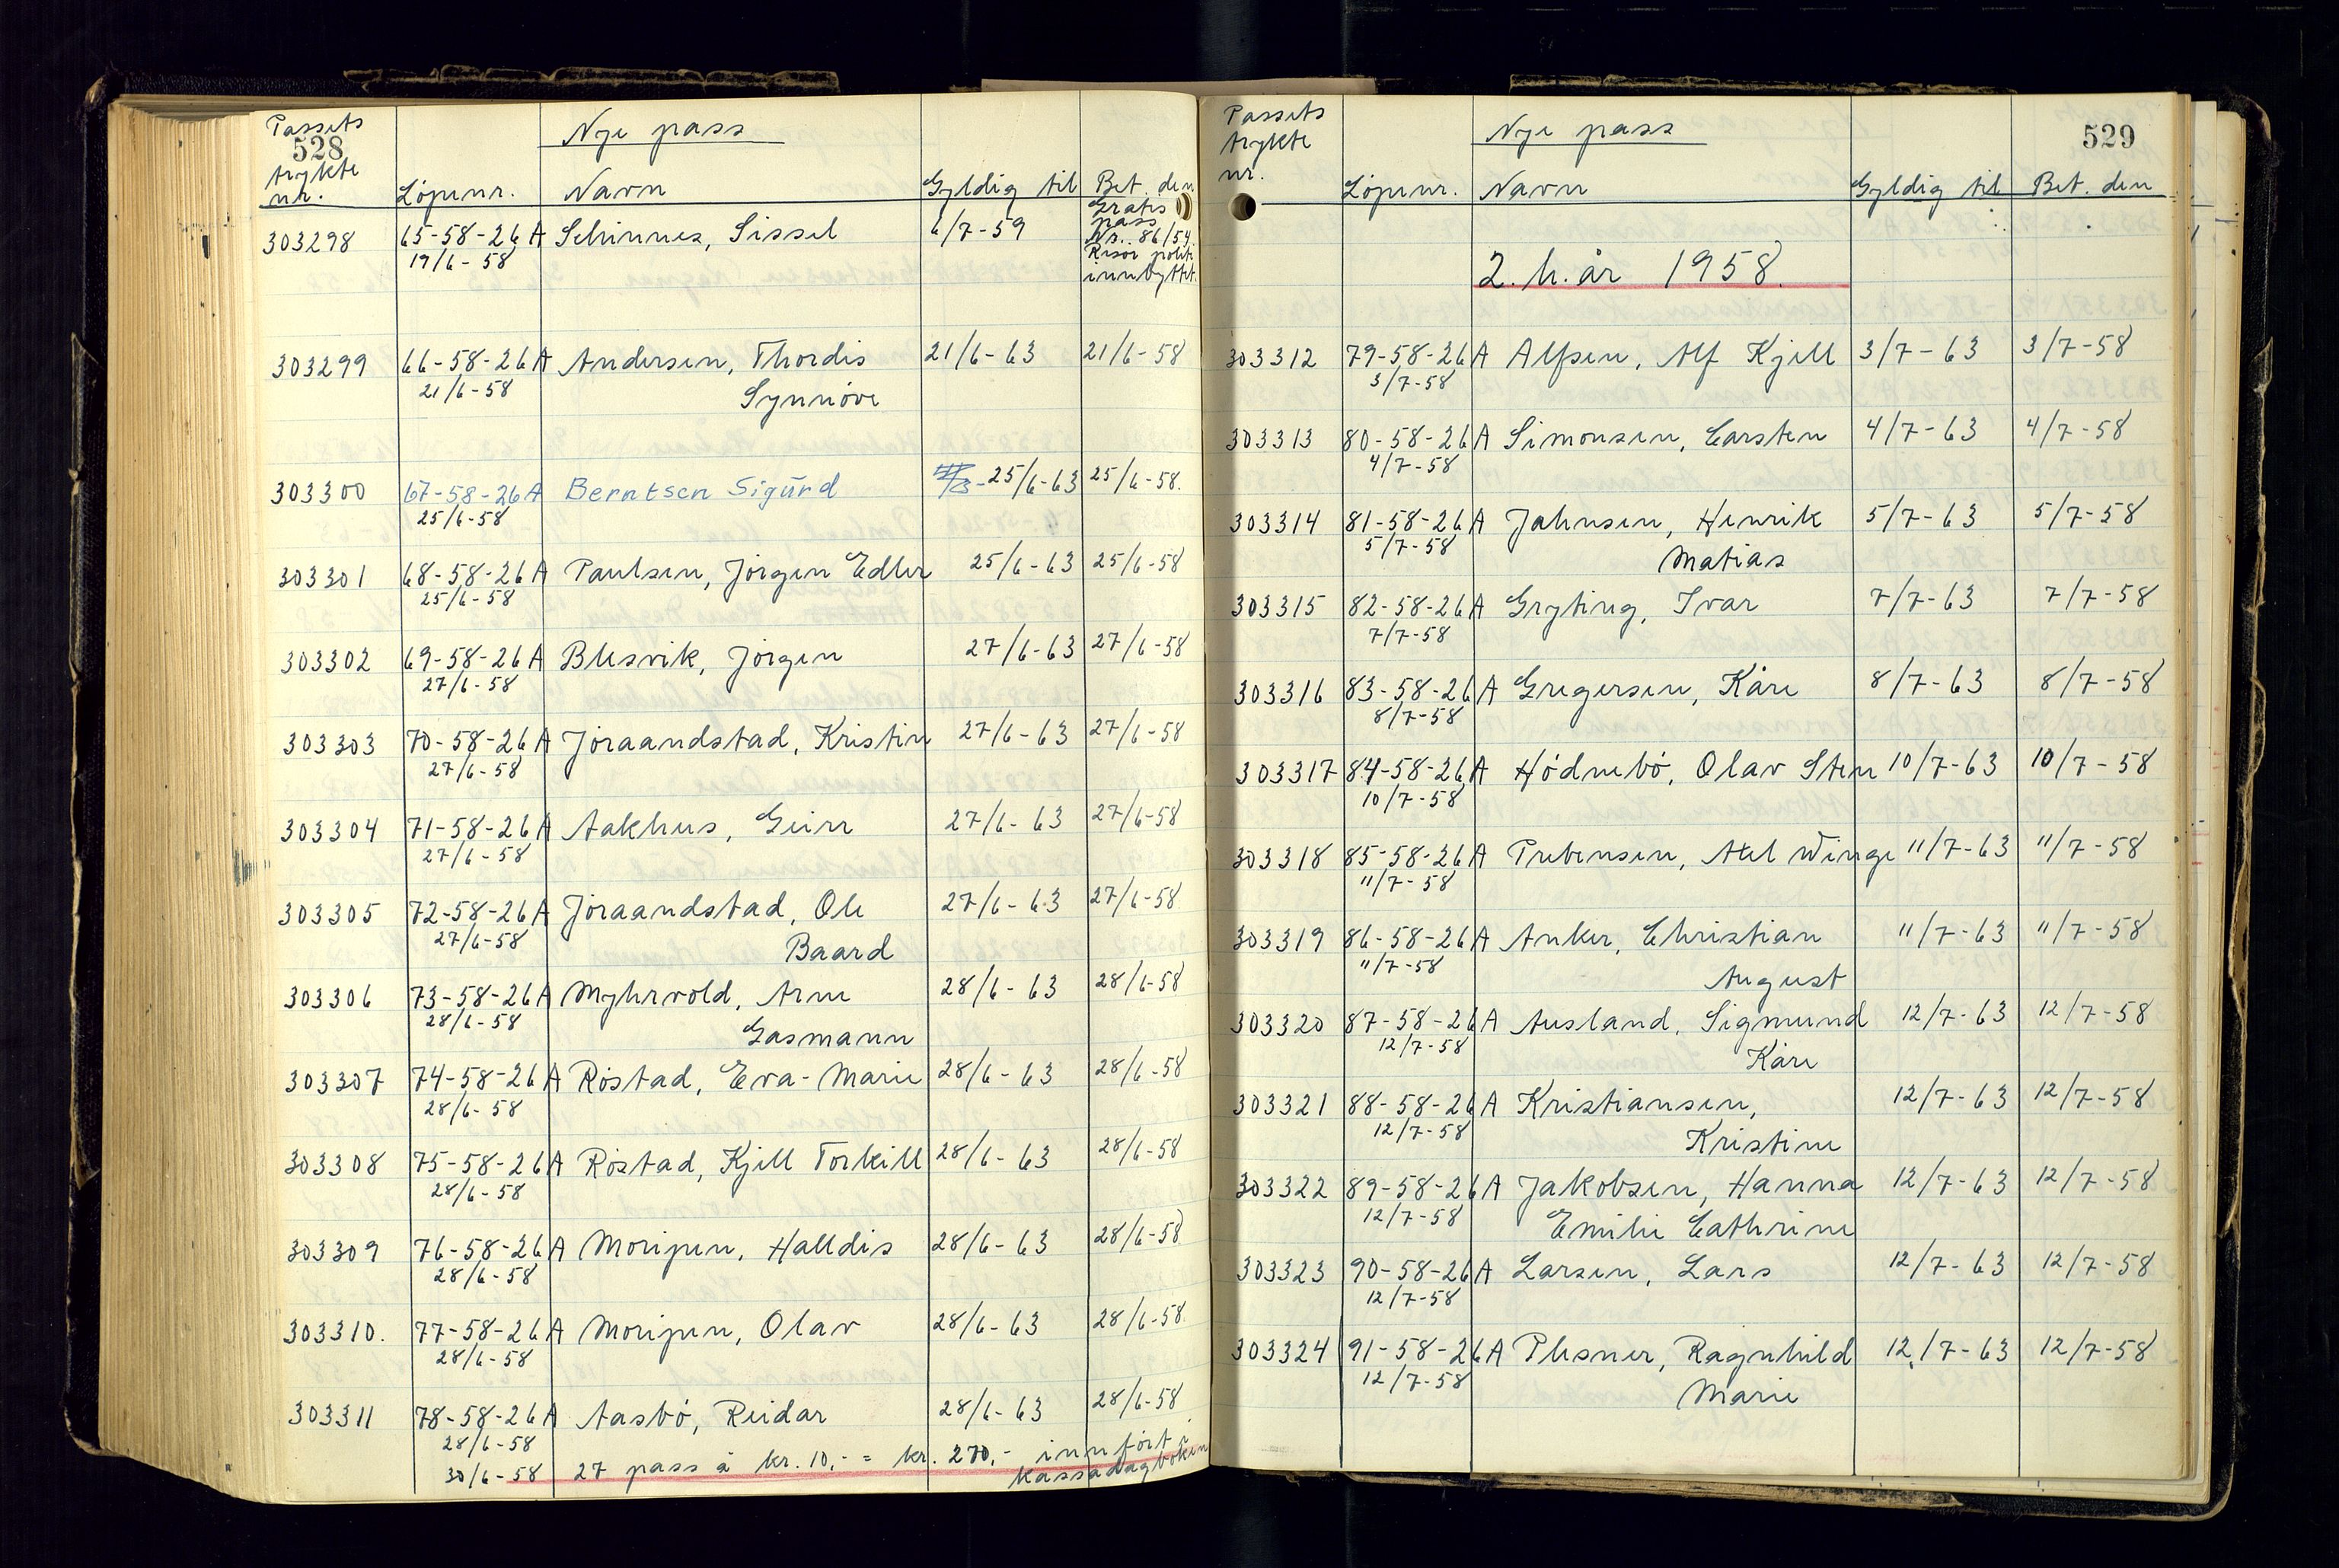 Passets
528
trykte
nr.
Löpenr.
Nye pass
Navn
Gyldig til
Bet. den
303298 65-58-26 A Schinnes, Sissel 6/7-59 Gratis
19/6-58 pass
Nr. 86/54.
Risør politi
innbyttet.
303299 66-58-26 A Andersen, Thordis 21/6-63 21/6-58
21/6-58 Synnöve
303300 67-58-26 A Berntsen Sigurd 25/6-63 25/6-58.
25/6-58
303301 68-58-26 A Paulsen, Jörgen Edler 25/6-63 25/6-58
25/6-58
303302 69-58-26 A Blesvik, Jörgen 27/6-63 27/6-58
27/6-58
303303 70-58-26 A Jöraandstad, Kristin 27/6-63 27/6-58
27/6-58
303304 71-58-26 A Aakhus, Geirr 27/6-63 27/6-58
27/6-58
303305 72-58-26 A Jöraandstad, Ole 27/6-63 27/6-58
27/6-58 Baard
303306 73-58-26 A Myhrvold, Arne 28/6-63 28/6-58
28/6-58 Gasmann
303307 74-58-26 A Röstad, Eva-Marie 28/6-63 28/6-58
28/6-58
303308 75-58-26 A Röstad, Kjell Torkill 28/6-63 28/6-58
28/6-58
303309 76-58-26 A Moripen, Halldis 28/6-63 28/6-58
28/6-58
303310. 77-58-26 A Moripen, Olav 28/6-63 28/6-58.
28/6-58
303311 78-58-26 A Aasbö, Reidar 28/6-63 28/6-58
28/6-58
30/6-58 27 pass á kr. 10,- = kr. 270,- innfört i
kassadagboken
Passets
trykte
nr.
Löpenr.
Nye pass
Navn
529
Gyldig til
Bet. den
2. h. år 1958.
303312 79-58-26 A Alfsen, Alf Kjell 3/7-63 3/7-58
3/7-58
303313 80-58-26 A Simonsen, Carsten 4/7-63 4/7-58
4/7-58
303314 81-58-26 A Jahnsen, Henrik 5/7-63 5/7-58
5/7-58 Matias
303315 82-58-26 A Gryting, Ivar 7/7-63 7/7-58
7/7-58
303316 83-58-26 A Gregersen, Kåre 8/7-63 8/7-58
8/7-58
303317 84-58-26 A Hödnebö, Olav Sten 10/7-63 10/7-58
10/7-58
303318 85-58-26 A Prebensen, Axel Winge 11/7-63 11/7-58
11/7-58
303319 86-58-26 A Anker, Christian 11/7-63 11/7-58
11/7-58 August
303320 87-58-26 A Ausland, Sigmund 12/7-63 12/7-58
12/7-58 Kåre
303321 88-58-26 A Kristiansen, 12/7-63 12/7-58
12/7-58 Kristine
303322 89-58-26 A Jakobsen, Hanna 12/7-63 12/7-58
12/7-58 Emilie Cathrine
303323 90-58-26 A Larsen, Lars 12/7-63 12/7-58
12/7-58
303324 91-58-26 A Plesner, Ragnhild 12/7-63 12/7-58
12/7-58 Marie